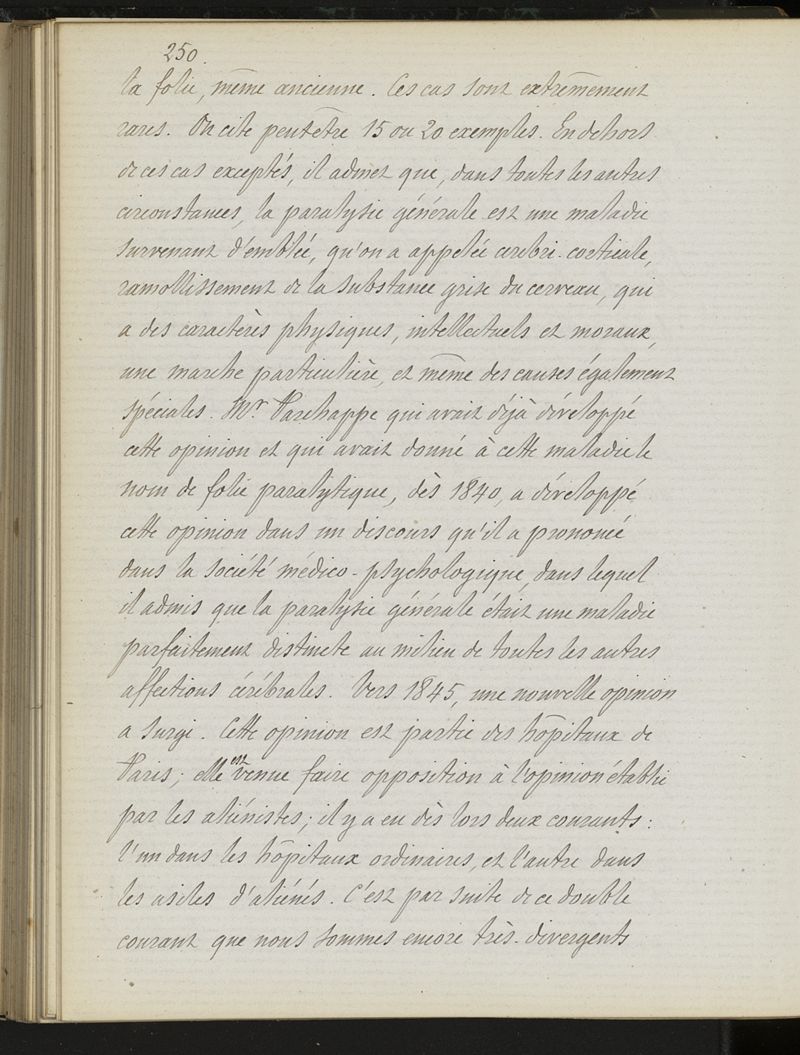 250.
la folie, même ancienne. Ces cas sont extrêmement
rares. On cite peut être 15 ou 20 exemples. En dehors
de ces cas exceptés, il admet que, dans toutes les autres
circonstances, la paralysie générale est une maladie
survenant d'emblée, qu'on a appelée cérébri-corticale,
ramollissement de la substance grise du cerveau, qui
a des caractères physiques, intellectuels et moraux,
une marche particulière, et même des causes également
spéciales. Mr Parchappe qui avait déjà développé
cette opinion et qui avait donné à cette maladie le
nom de folie paralytique, dès 1840, a développé
cette opinion dans un discours qu'il a prononcé
dans la société médico-psychologique, dans lequel
il admis que la paralysie générale était une maladie
parfaitement distincte au milieu de toutes les autres
affections cérébrales. Vers 1845, une nouvelle opinion
a surgi. Cette opinion est partie des hôpitaux de
Paris; elle est venue faire opposition à l'opinion établie
par les aliénistes; il y a eu dès lors deux courants:
l'un dans les hôpitaux ordinaires, et l'autre dans
les asiles d'aliénés. C'est par suite de ce double
courant que nous sommes encore très-divergents